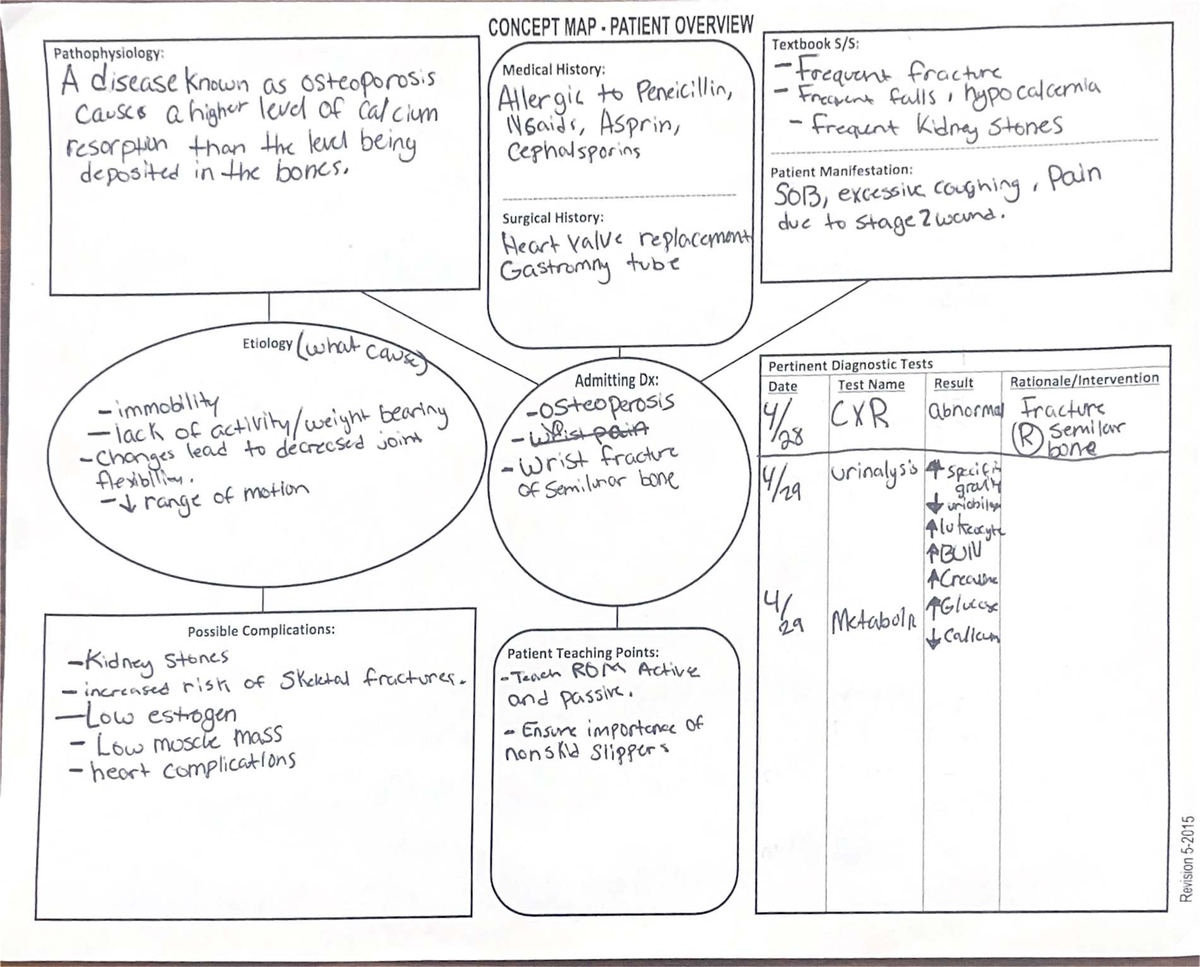 CONCEPT MAP - PATIENT OVERVIEW
Pathophysiology:
A disease known as osteoporosis
causes a higher level of calcium
resorption than the level being
deposited in the bones.
Medical History:
Allergic to Peneicillin,
NSaids, Asprin,
Cephalsporins
Surgical History:
Heart valve replacement
Gastromny tube
Textbook S/S:
- Frequent fracture
- Frequent falls, hypocalcemia
- frequent Kidney Stones
Patient Manifestation:
SOB, excessive coughing, Pain
due to stage 2 wound.
Etiology (what cause)
- immobility
- lack of activity/weight bearing
- Changes lead to decreased joint
flexibility.
- ↓ range of motion
Admitting Dx:
- Osteoperosis
- Wrist pain
- Wrist fracture
of Semilunar bone
Pertinent Diagnostic Tests
Date Test Name Result Rationale/Intervention
4/28 CXR abnormal Fracture
(R) Semilar
bone
4/29 urinalysis ↑ specific
gravity
↓
↑
↑ BUN
↑
4/29 ↑ Glucose
↓ Calicum
Possible Complications:
- Kidney stones
- increased risk of Skeletal fractures.
- Low estrogen
- Low muscle mass
- heart complications
Patient Teaching Points:
- Teach ROM Active
and passive.
- Ensure importance of
nonskid slippers
Revision 5-2015